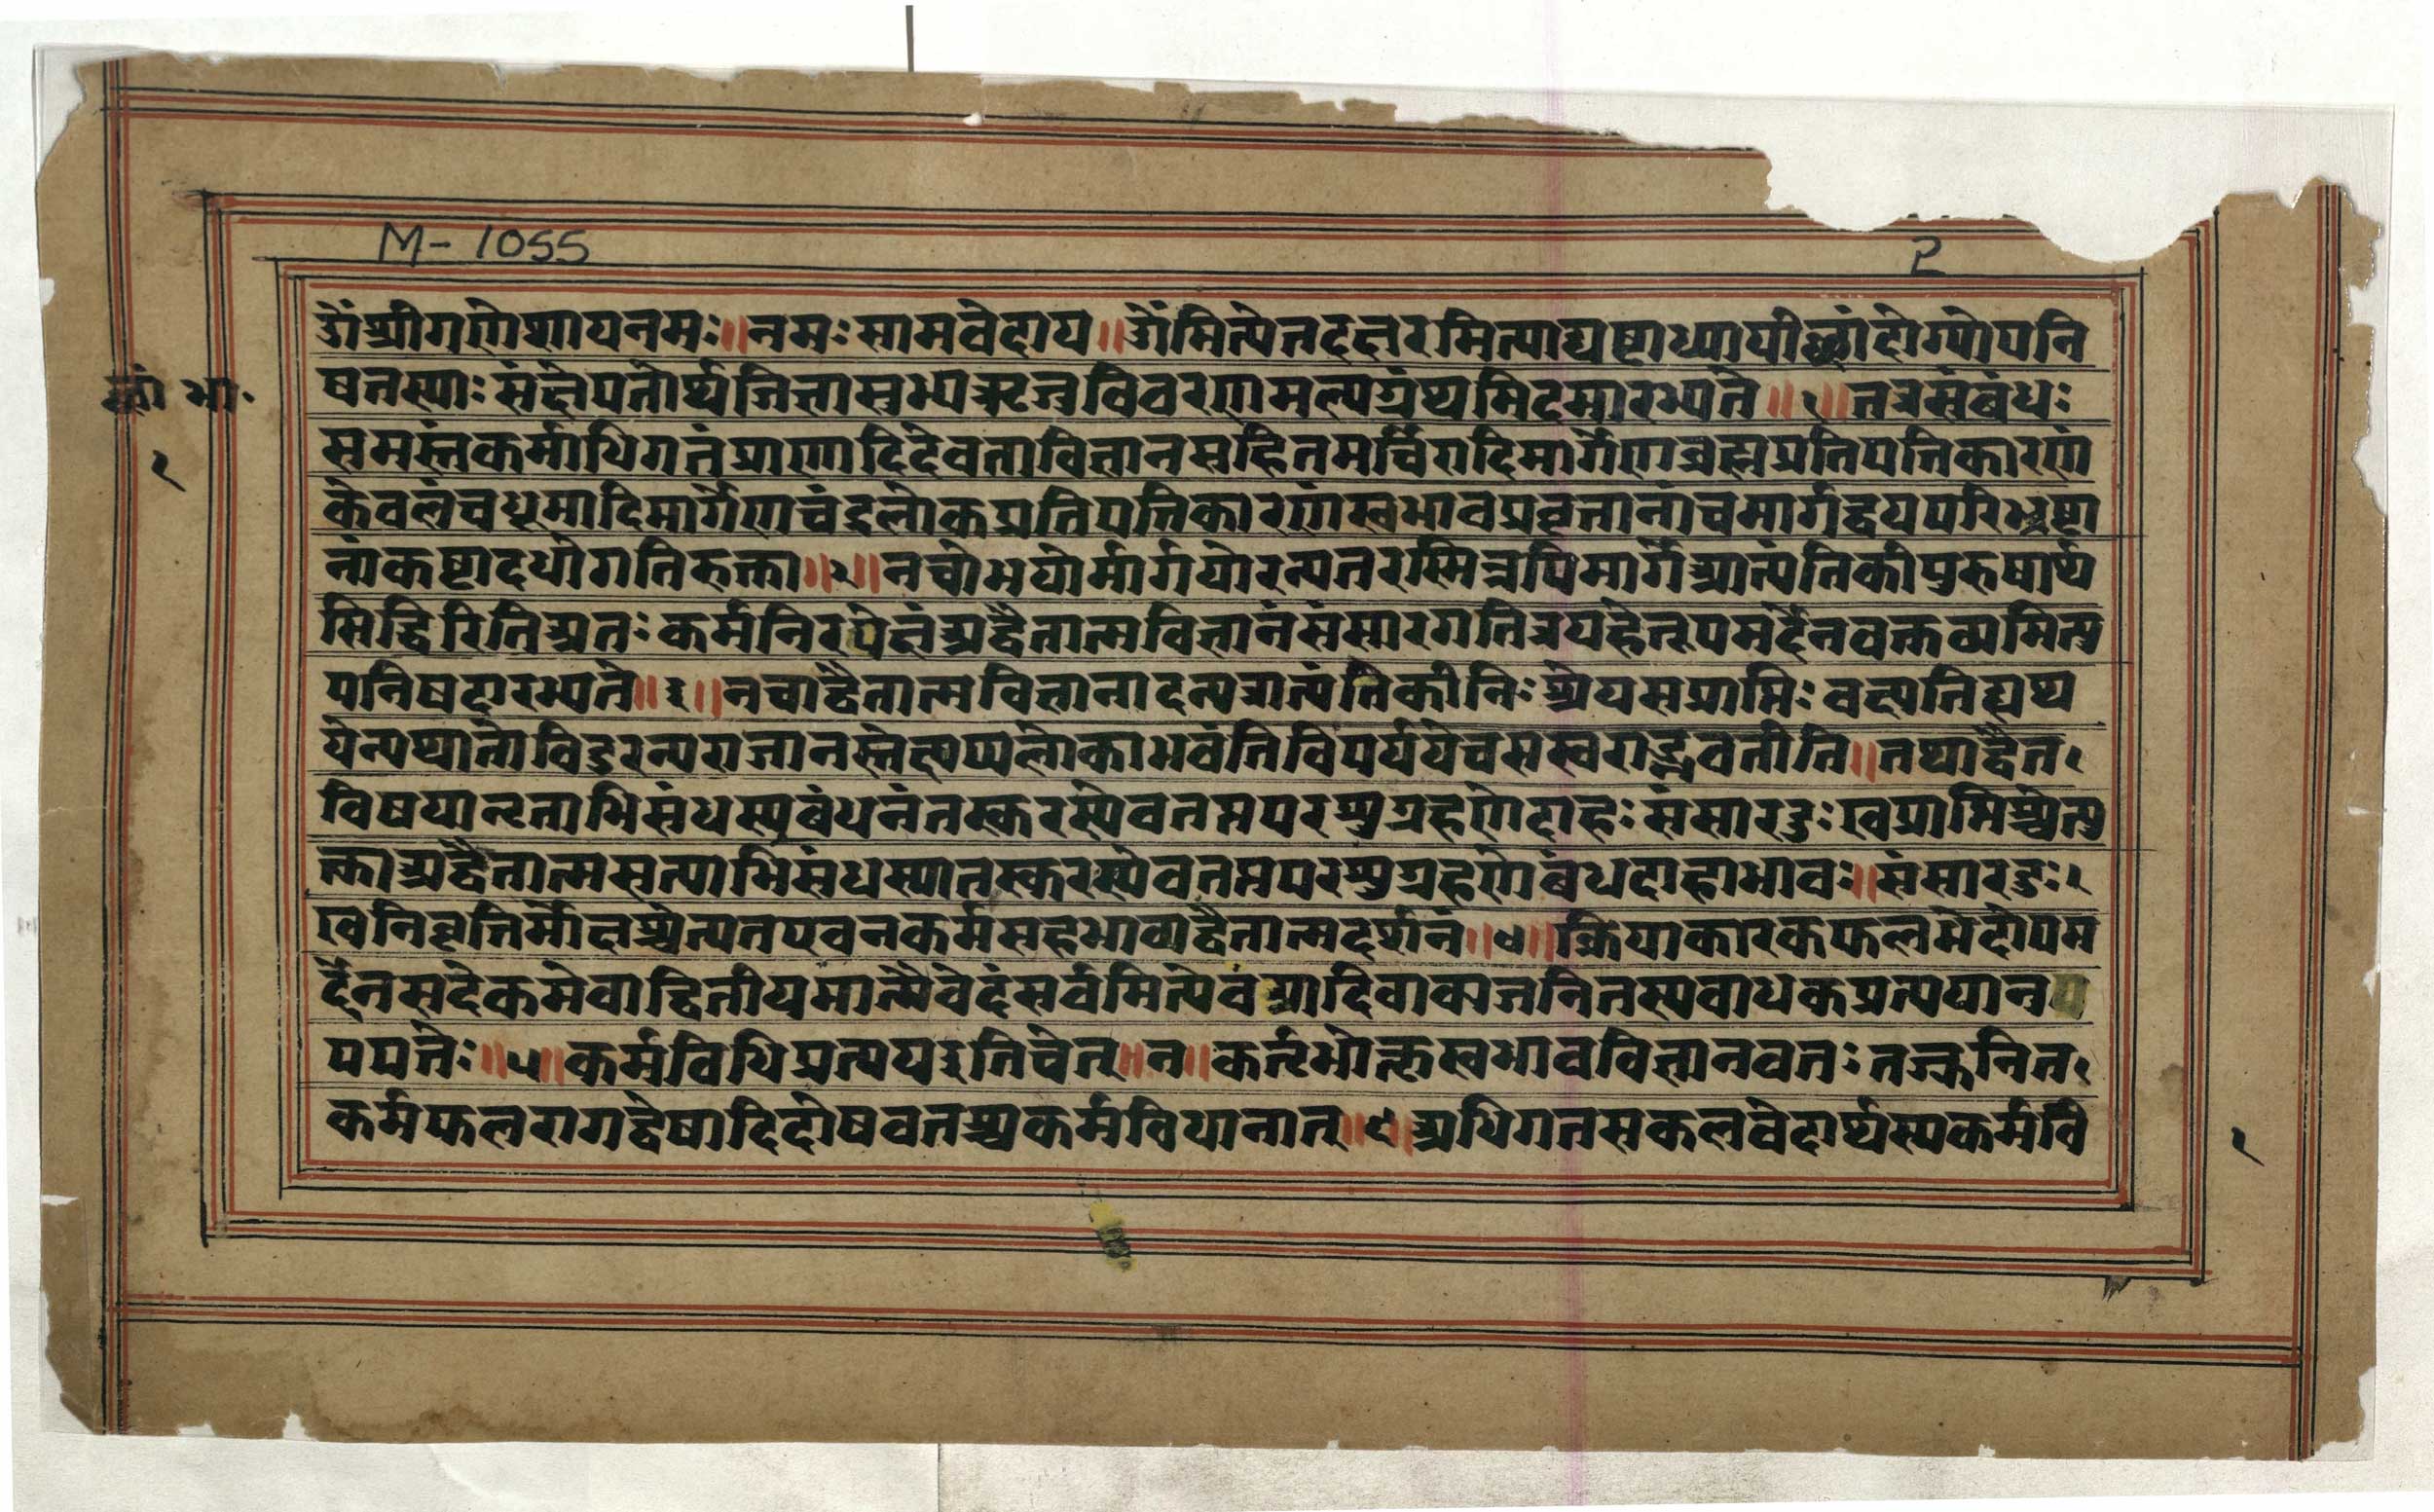 M-1055
2
ॐश्रीगणेशायनमः॥नमःसामवेदाय॥ॐमित्येतदक्षरमित्याद्यष्टाध्यायीछांदोग्योपनि
छां भा॰
षतस्याःसंक्षेपतोर्थजिज्ञासुभ्यऋजुविवरणमल्पग्रंथमिदमारभ्यते॥१॥तत्रसंबंधः
समस्तंकर्माधिगतंप्राणादिदेवताविज्ञानसहितमर्चिरादिमार्गेणब्रह्मप्रतिपत्तिकारणं
१
केवलंचधूमादिमार्गेणचंद्रलोकप्रतिपत्तिकारणंस्वभावप्रवृत्तानांचमार्गद्वयपरिभ्रष्टा
नांकष्टादधोगतिरुक्ता॥२॥नचोभयोर्मार्गयोरन्यतरस्मिन्नपिमार्गेआत्यंतिकीपुरुषार्थ
सिद्धिरितिअतःकर्मनिरपेक्षंअद्वैतात्मविज्ञानंसंसारगतित्रयहेतूपमर्देनवक्तव्यमित्यु
पनिषदारभ्यते॥३॥नचाद्वैतात्मविज्ञानादन्यत्रात्यंतिकीनिःश्रेयसप्राप्तिःवक्ष्यतिह्यथ
येन्यथातोविदुरन्यराजानस्तेक्षय्यलोकाभवंतिविपर्ययेचसस्वराड्भवतीति॥तथाद्वैत१
विषयानृताभिसंधस्यबंधनंतस्करस्येवतप्तपरशुग्रहणेदाहःसंसारदुःखप्राप्तिश्चेत्यु
क्ताअद्वैतात्मसत्याभिसंधस्यातस्करस्येवतप्तपरशुग्रहणेबंधदाहाभावः॥संसारदुः१
खनिवृत्तिर्मोक्षश्चेत्यतएवनकर्मसहभाव्यद्वैतात्मदर्शनं॥४॥क्रियाकारकफलभेदोपम
र्देनसदेकमेवाद्वितीयमात्मैवेदंसर्वमित्येवआदिवाक्यजनितस्यबाधकप्रत्ययानुप
पपत्तेः॥५॥कर्मविधिप्रत्ययइतिचेत्॥न॥कर्तृभोक्तृस्वभावविज्ञानवतःतज्जनित१
कर्मफलरागद्वेषादिदोषवतश्चकर्मविधानात्॥६॥अधिगतसकलवेदार्थस्यकर्मवि
१